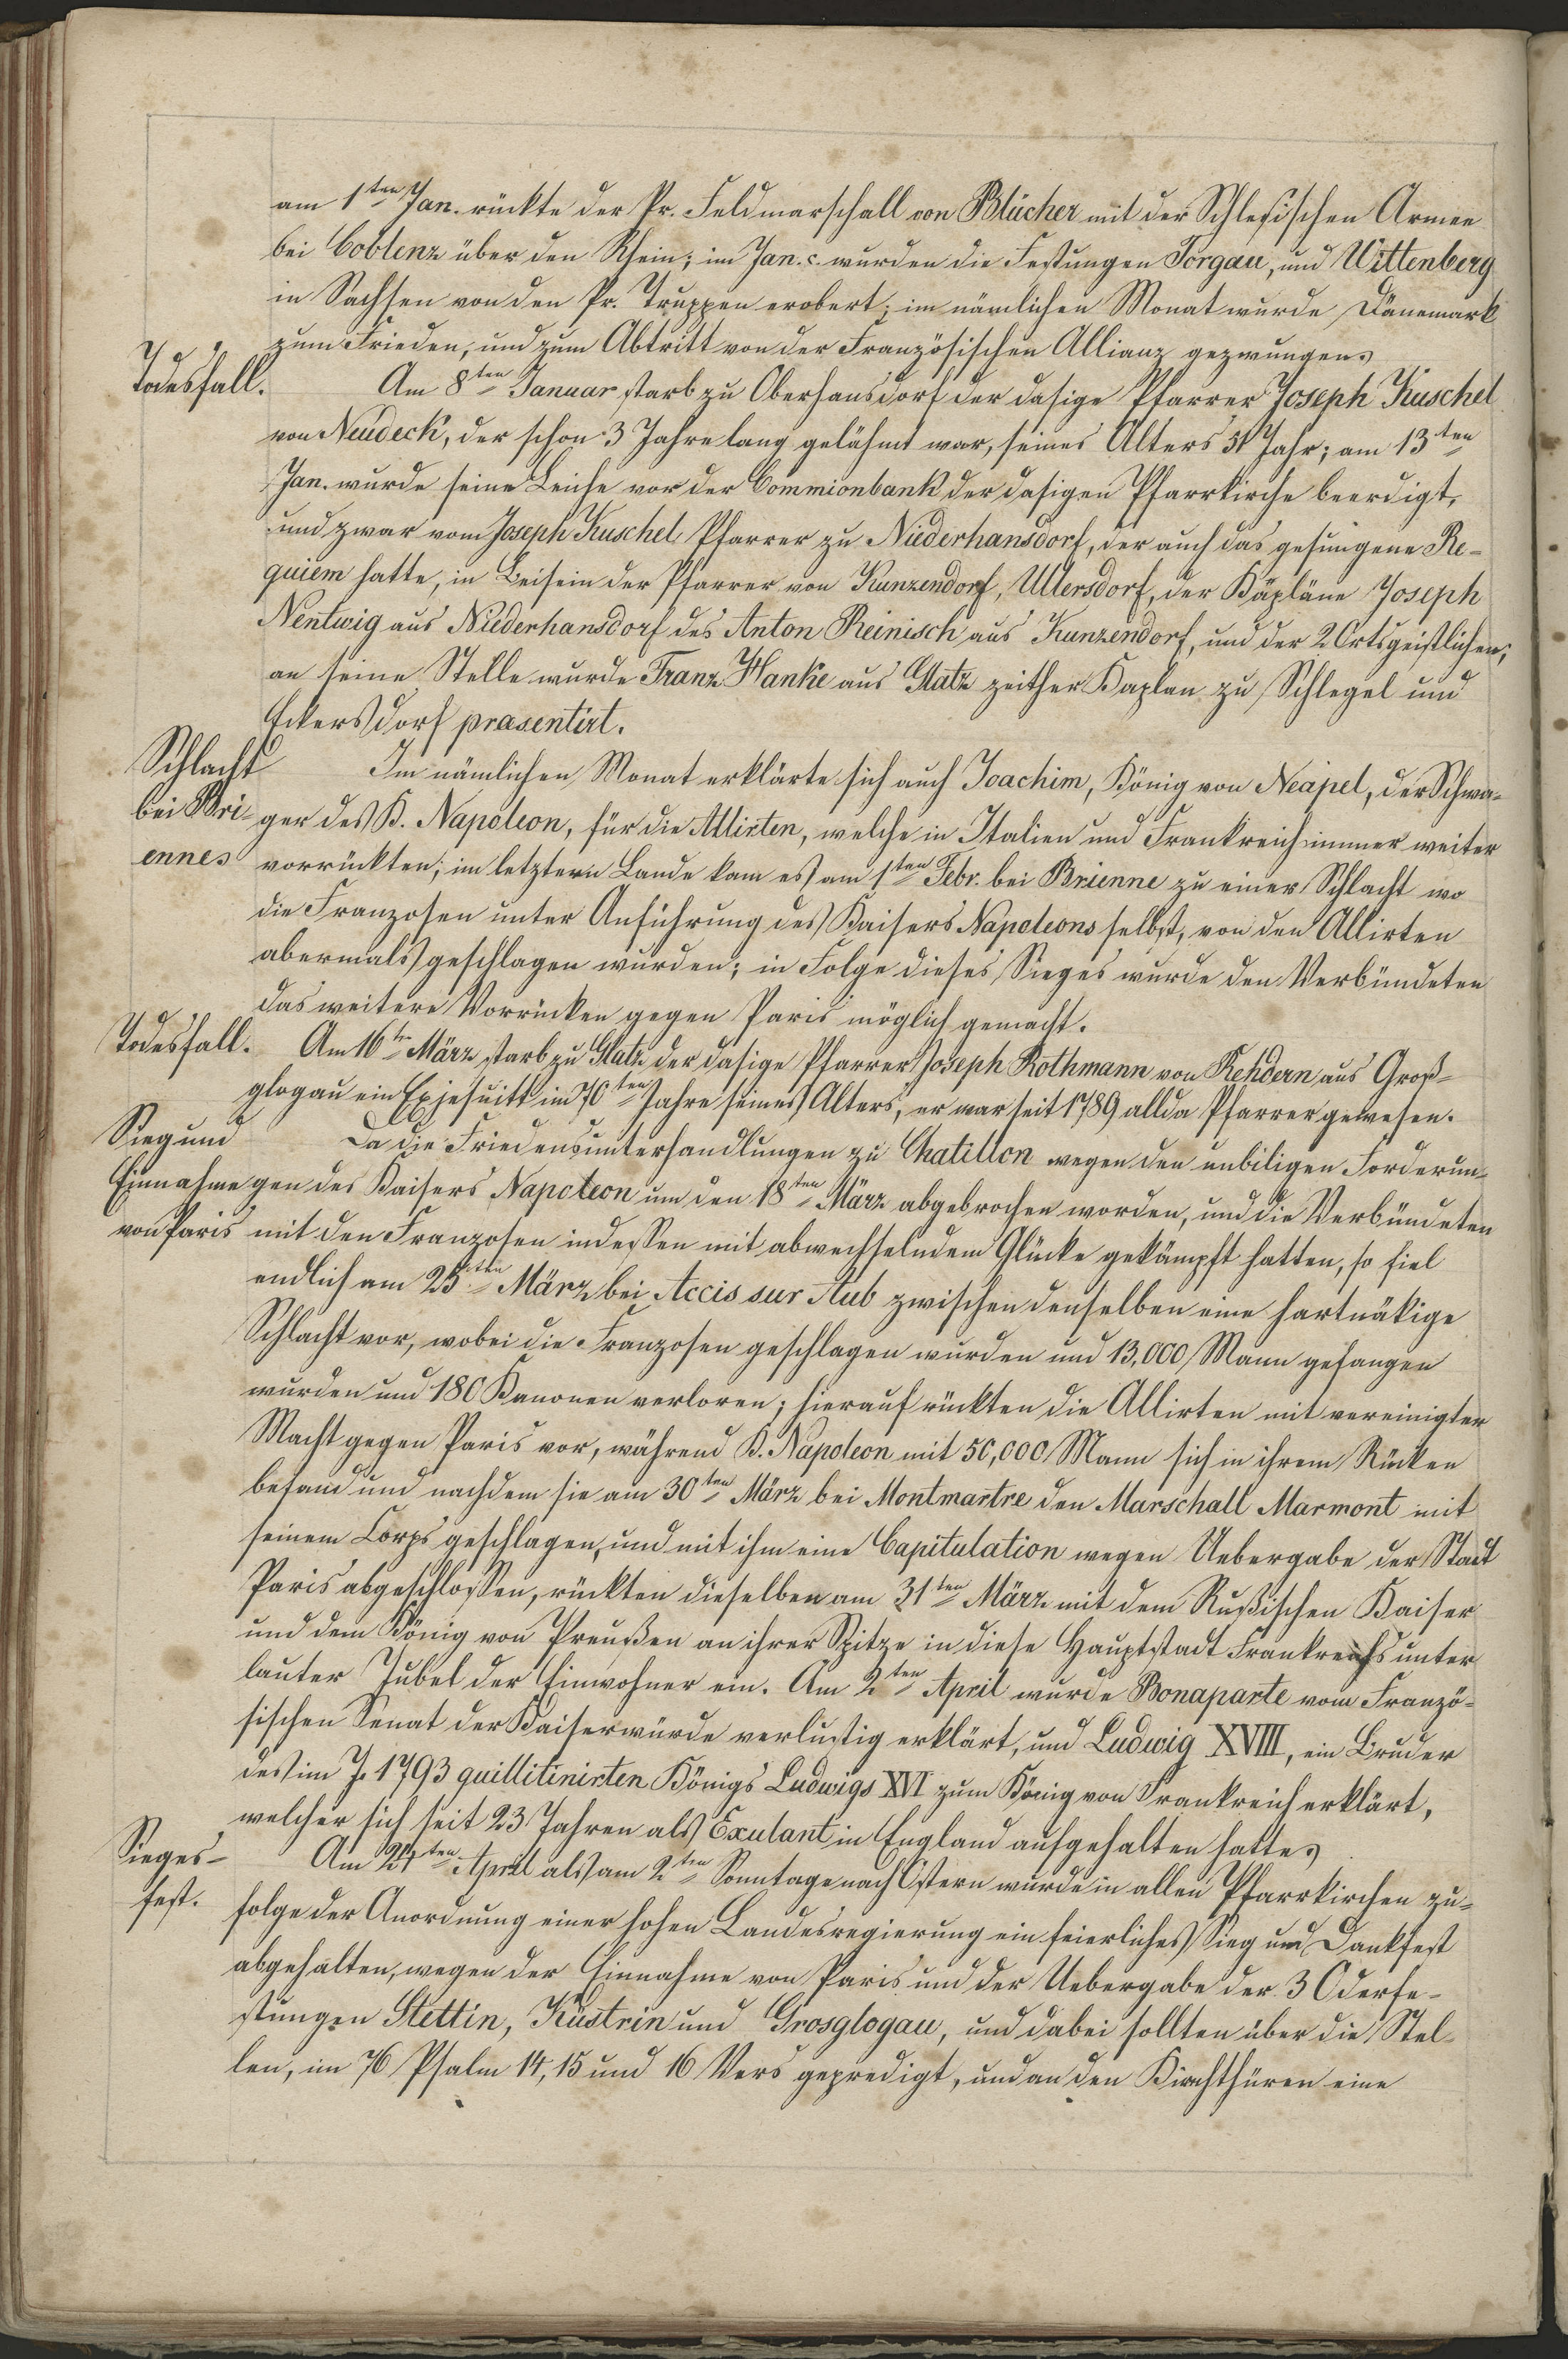 am 1ten Jan. rückte der Pr. Feldmarschall von Blücher mit der Schlesischen Armee
bei Coblenz über den Rhein; im Jan. c. wurden die Festungen Torgau, und Wittenberg
in Sachsen von den Pr. Truppen erobert; im nämlichen Monat wurde Dänemark
zum Frieden, und zum Abtritt von der Französischen Allianz gezwungen.
Todesfall.
Am 8ten Januar starb zu Oberhansdorf der dasige Pfarrer Joseph Kuschel
von Neudeck, der schon 3 Jahre lang gelähmt war, seines Alters 51 Jahr; am 13ten
Jan. wurde seine Leiche vor der Commionbank der dasigen Pfarrkirche beerdigt,
und zwar vom Joseph Kuschel Pfarrer zu Niederhansdorf, der auch das gesungene Re-
quiem hatte, in Beisein der Pfarrer von Kunzendorf, Ullersdorf, der Käpläne Joseph
Nentwig aus Niederhansdorf des Anton Reinisch aus Kunzendorf, und der 2 Ortsgeistlichen;
an seine Stelle wurde Franz Hanke aus Glatz zeither Kaplan zu Schlegel und
Eckersdorf präsentirt.
Schlacht
bei Bri-
ennes
Im nämlichen Monat erklärte sich auch Joachim, König von Neapel, der Schwa-
ger des K. Napoleon, für die Allirten, welche in Italien und Frankreich immer weiter
vorrückten; im letztern Lande kam es am 1ten Febr. bei Brienne zu einer Schlacht wo
die Franzosen unter Anführung des Kaisers Napoleons selbst, von den Allirten
abermals geschlagen wurden; in Folge dieses Sieges wurde den Verbündeten
das weitere Vorrücken gegen Paris möglich gemacht.
Todesfall.
Am 16ten März starb zu Glatz der dasige Pfarrer Joseph Rothmann von Rehdern aus Groß-
glogau ein Exjesuitt im 70ten Jahre seines Alters, er war seit 1789 allda Pfarrer gewesen.
Sieg und
Einnahme
von Paris
Da die Friedensunterhandlungen zu Chatillon wegen den unbiligen Forderun-
gen des Kaisers Napoleon um den 18ten März abgebrochen worden, und die Verbündeten
mit den Franzosen indessen mit abwechselndem Glücke gekämpft hatten, so fiel
endlich am 25ten März bei Accis sur Aub zwischen denselben eine hartnäkige
Schlacht vor, wobei die Franzosen geschlagen wurden und 13,000 Mann gefangen
wurden und 180 Kanonen verloren; hierauf rückten die Allirten mit vereinigter
Macht gegen Paris vor, während K. Napoleon mit 50,000 Mann sich in ihrem Rücken
befand und nachdem sie am 30ten März bei Montmartre den Marschall Marmont mit
seinem Corps geschlagen, und mit ihm eine Capitulation wegen Uebergabe der Stadt
Paris abgeschlossen, rückten dieselben am 31ten März mit dem Rußischen Kaiser
und dem König von Preußen an ihrer Spitze in diese Hauptstadt Frankreichs unter
lauter Jubel der Einwohner ein. Am 2ten April wurde Bonaparte vom Franzö-
sischen Senat der Kaiserwürde verlustig erklärt, und Ludwig XVIII, ein Bruder
des im J. 1793 guillitinirten Königs Ludwigs XVI zum König von Frankreich erklärt,
welcher sich seit 23 Jahren als Exulant in England aufgehalten hatte.
Sieges-
fest.
Am 24ten April als am 2ten Sonntage nach Ostern wurde in allen Pfarrkirchen zu-
folge der Anordnung einer hohen Landesregierung ein feierliches Sieg und Dankfest
abgehalten, wegen der Einnahme von Paris und der Uebergabe der 3 Oderfe-
stungen Stettin, Küstrin und Grosglogau, und dabei sollten über die Stel-
len, im 76 Psalm 14, 15 und 16 Vers gepredigt, und an den Kirchthüren eine